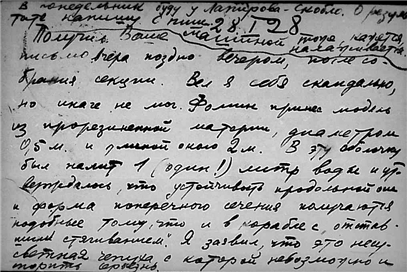 В понедельник буду у Лапирова-Скобло. О резуль
тате напишу
28 I 28
Получил Ваше
письмо вчера поздно вечером, после со
брания секции. Вел я себя скандально,
но иначе не мог. Фомин принес модель
из прорезиненной материи, диаметром
0,5 м. и длиной около 2 м. В эту оболочку
был налит 1 (один!) литр воды и ут
верждалось, что устойчивость продольной оси
и форма поперечного сечения получаются
подобные тому, что и в корабле с „оттяв
стягиванием". Я заявил, что это несу
светная чепуха, с которой невозможно и